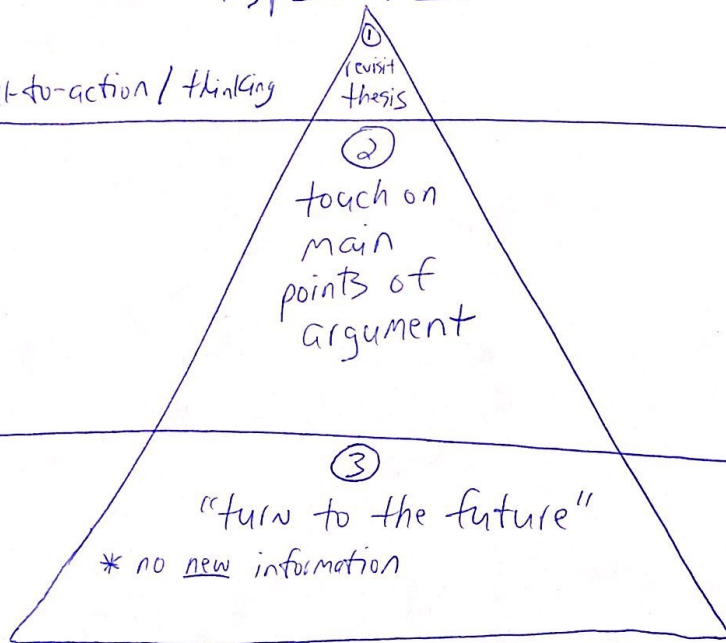 ①
revisit
-to-action / thinking
thesis
②
touch on
main
points of
argument
③
"turn to the future"
* no new information